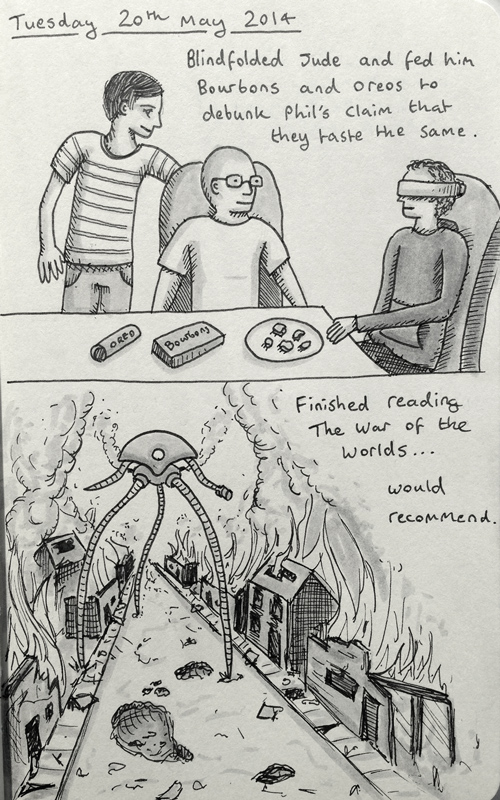 Tuesday 20th May 2014
Blindfolded Jude and fed him
Bourbons and Oreos to
debunk Phil's claim that
they taste the same.
OREO
Bourbons
Finished reading
The War of the
Worlds...
would
recommend.